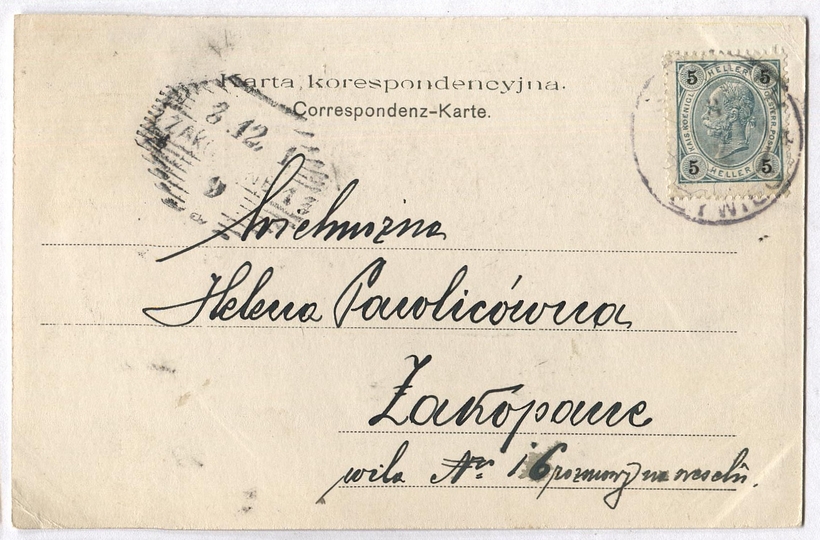 Karta korespondencyjna.
Correspondenz-Karte.
5 HELLER 5
KAIS. KOENIGL. OESTERR. POST
5 HELLER 5
8 12
ZAK
9
Wielmożna
Helena Pawlicówna
Zakopane
willa № 16